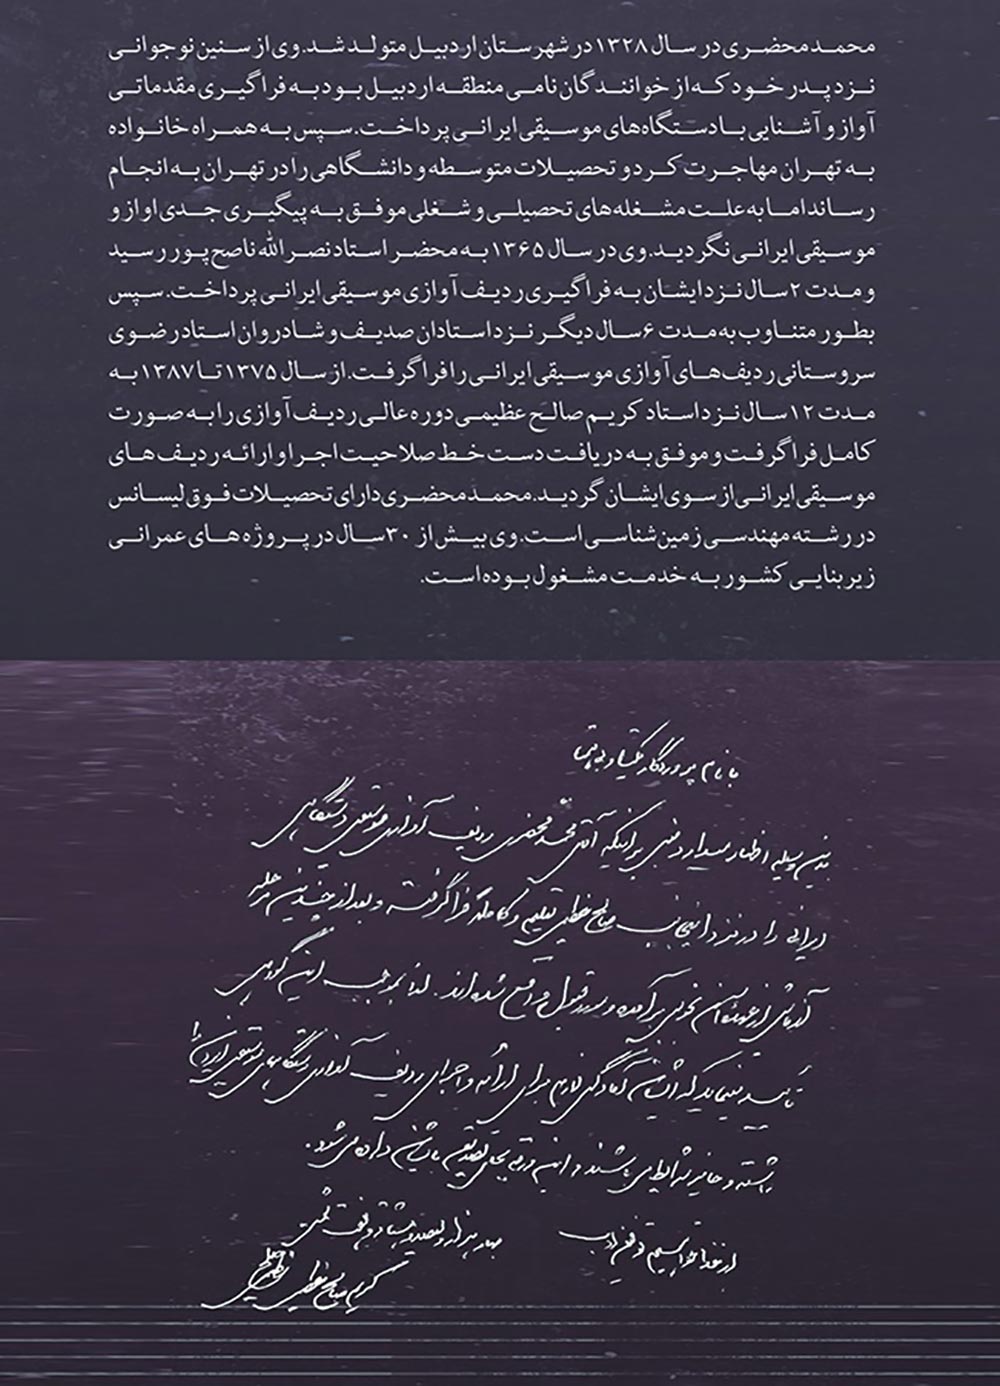 محمد محضری در سال ۱۳۲۸ در شهرستان اردبیل متولد شد. وی از سنین نوجوانی
نزد پدر خود که از خوانندگان نامی منطقه اردبیل بود به فراگیری مقدماتی
آواز و آشنایی با دستگاه‌های موسیقی ایرانی پرداخت. سپس به همراه خانواده
به تهران مهاجرت کرد و تحصیلات متوسطه و دانشگاهی را در تهران به انجام
رساند اما به علت مشغله‌های تحصیلی و شغلی موفق به پیگیری جدی اواز و
موسیقی ایرانی نگردید. وی در سال ۱۳۶۵ به محضر استاد نصرالله ناصح‌پور رسید
و مدت ۲ سال نزد ایشان به فراگیری ردیف آوازی موسیقی ایرانی پرداخت. سپس
بطور متناوب به مدت ۶ سال دیگر نزد استادان صدیف و شادروان استاد رضوی
سروستانی ردیف‌های آوازی موسیقی ایرانی را فرا گرفت. از سال ۱۳۷۵ تا ۱۳۸۷ به
مدت ۱۲ سال نزد استاد کریم صالح عظیمی دوره عالی ردیف آوازی را به صورت
کامل فرا گرفت و موفق به دریافت دست خط صلاحیت اجرا و ارائه ردیف‌های
موسیقی ایرانی از سوی ایشان گردید. محمد محضری دارای تحصیلات فوق لیسانس
در رشته مهندسی زمین‌شناسی است. وی بیش از ۳۰ سال در پروژه‌های عمرانی
زیربنایی کشور به خدمت مشغول بوده است.
با نام پروردگار یکتا و بی‌همتا
بدین وسیله اظهار میدارد مبنی بر اینکه آقای محمد محضری ردیف آوازی موسیقی دستگاهی
ایرانی را در نزد اینجانب صالح عظیمی تعلیم و کاملاً فرا گرفته و بعد از چندین مرحله
آزمایش از عهده آن بخوبی برآمده و مورد قبول واقع شده‌اند. لذا بموجب این گواهی
تأیید مینماید که ایشان آمادگی لازم برای ارائه و اجرای ردیف آوازی دستگاههای موسیقی ایران را
داشته و حائز شرایط می‌باشند و این ورقه بجای تصدیق بایشان داده می‌شود.
از خدا خواستیم توفیق ادب
کریم صالح عظیمی